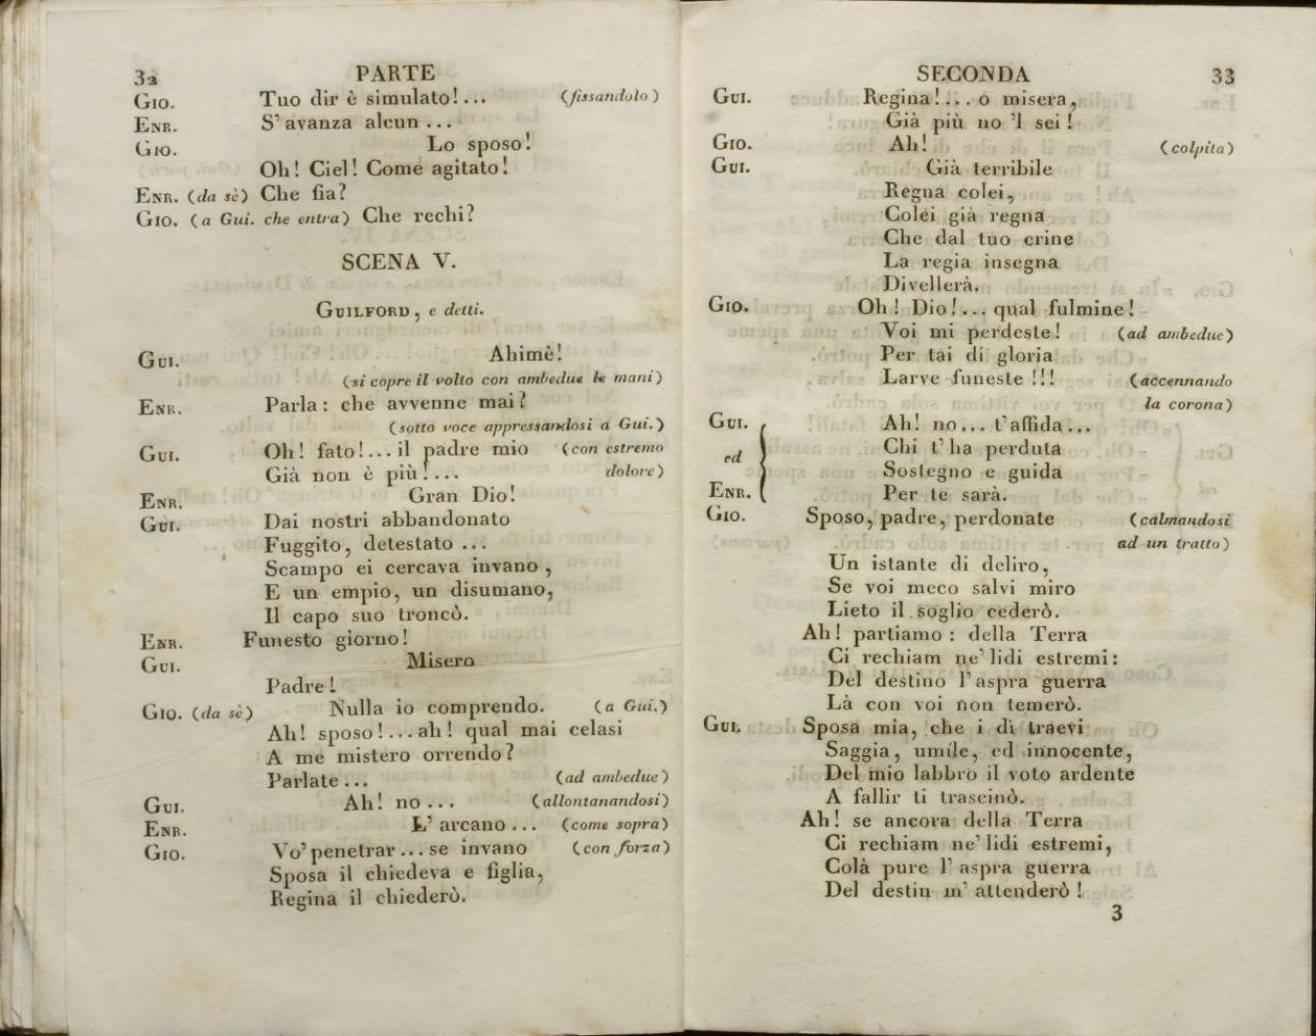 32 PARTE
GIO. Tuo dir è simulato!... (fissandolo)
ENR. S'avanza alcun ...
GIO. Lo sposo!
Oh! Ciel! Come agitato!
ENR. (da sè) Che fia?
GIO. (a Gui. che entra) Che rechi?
SCENA V.
GUILFORD, e detti.
GUI. Ahimè!
(si copre il volto con ambedue le mani)
ENR. Parla: che avvenne mai?
(sotto voce appressandosi a Gui.)
GUI. Oh! fato!... il padre mio (con estremo
Già non è più!... dolore)
ENR. Gran Dio!
GUI. Dai nostri abbandonato
Fuggito, detestato ...
Scampo ei cercava invano,
E un empio, un disumano,
Il capo suo troncò.
ENR. Funesto giorno!
GUI. Misero
Padre!
GIO. (da sè) Nulla io comprendo. (a Gui.)
Ah! sposo!... ah! qual mai celasi
A me mistero orrendo?
Parlate ... (ad ambedue)
GUI. Ah! no ... (allontanandosi)
ENR. L'arcano ... (come sopra)
GIO. Vo'penetrar ... se invano (con forza)
Sposa il chiedeva e figlia,
Regina il chiederò.
SECONDA 33
GUI. Regina!... o misera,
Già più no 'l sei!
GIO. Ah! (colpita)
GUI. Già terribile
Regna colei,
Colei già regna
Che dal tuo crine
La regia insegna
Divellerà.
GIO. Oh! Dio!... qual fulmine!
Voi mi perdeste! (ad ambedue)
Per tai di gloria
Larve funeste!!! (accennando
la corona)
GUI. Ah! no... t'affida...
ed Chi t'ha perduta
Sostegno e guida
ENR. Per te sarà.
GIO. Sposo, padre, perdonate (calmandosi
ad un tratto)
Un istante di deliro,
Se voi meco salvi miro
Lieto il soglio cederò.
Ah! partiamo: della Terra
Ci rechiam ne'lidi estremi:
Del destino l'aspra guerra
Là con voi non temerò.
GUI. Sposa mia, che i dì traevi
Saggia, umile, ed innocente,
Del mio labbro il voto ardente
A fallir ti trascinò.
Ah! se ancora della Terra
Ci rechiam ne'lidi estremi,
Colà pure l'aspra guerra
Del destin m'attenderò!
3